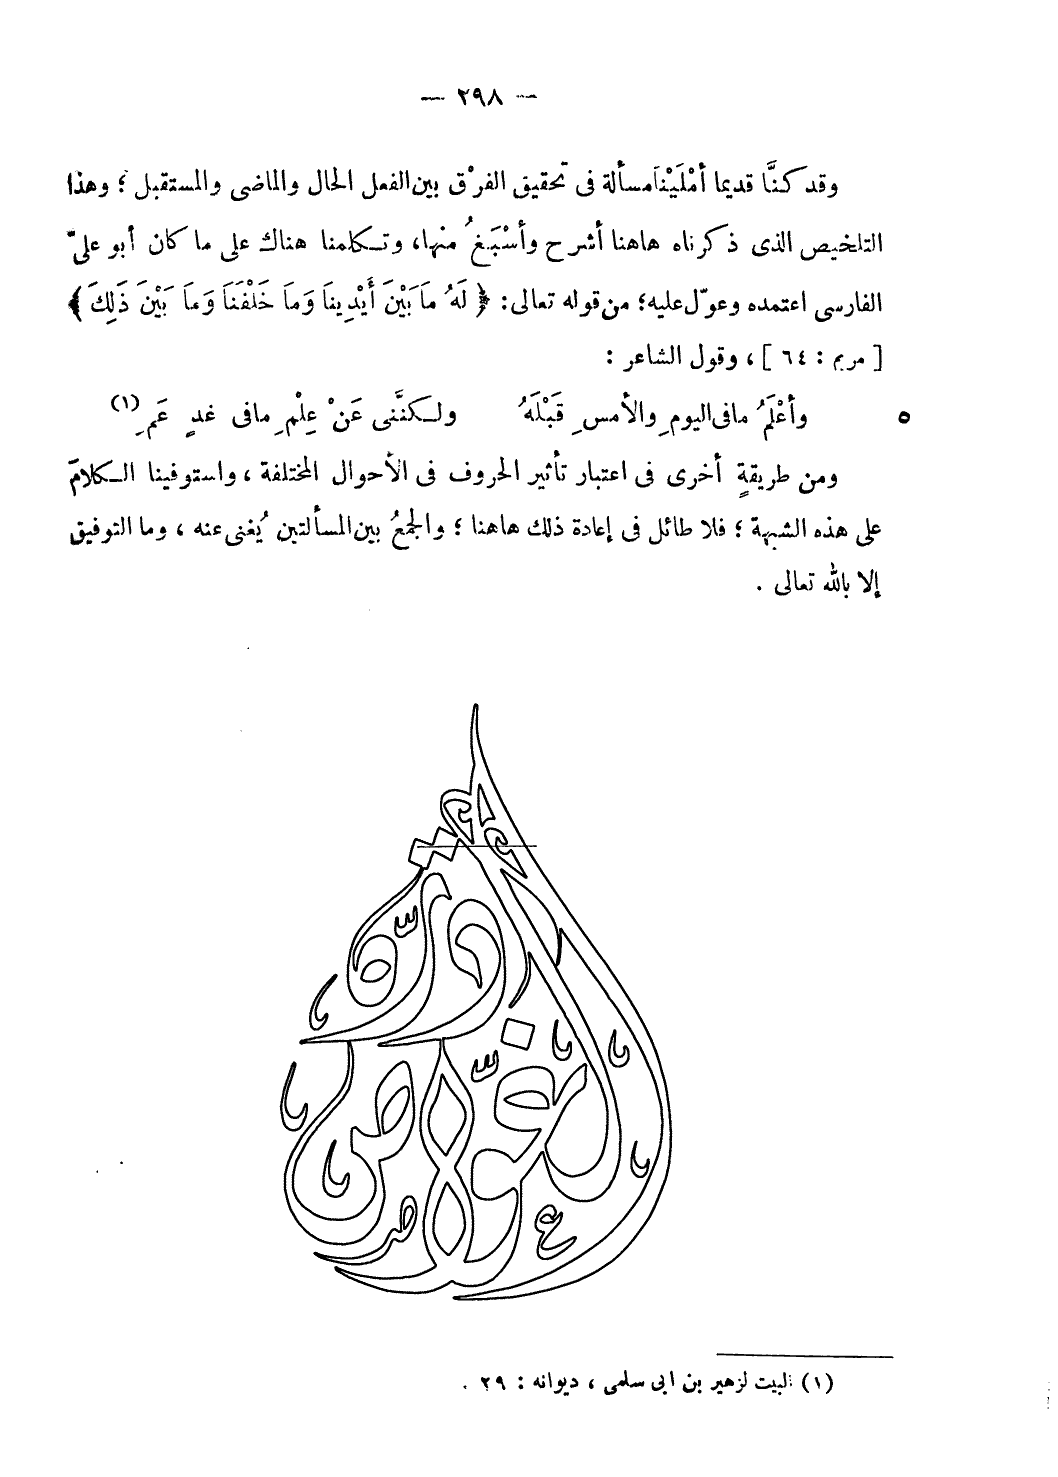 — ٢٩٨ —
وقد كنَّا قديما أمْلَيْنَا مسألة فى تحقيق الفرْق بين الفعل الحال والماضى والمستقبل ؛ وهذا
التلخيص الذى ذكرناه هاهنا أشرح وأسْبَغُ منها، وتكلمنا هناك على ما كان أبو علىّ
الفارسى اعتمده وعوّل عليه؛ من قوله تعالى: ﴿ لَهُ مَا بَيْنَ أَيْدِينَا وَمَا خَلْفَنَا وَمَا بَيْنَ ذَلِكَ ﴾
[ مريم : ٦٤ ] ، وقول الشاعر :
وأعْلَمُ مافى اليومِ والأمسِ قَبْلَهُ ولكنَّنى عَنْ عِلْمِ مافى غدٍ عَمِ (١) ٥
ومن طريقةٍ أخرى فى اعتبار تأثير الحروف فى الأحوال المختلفة ، واستوفينا الكلامَ
على هذه الشبهة ؛ فلا طائل فى إعادة ذلك هاهنا ؛ والجمعُ بين المسألتين يُغنى عنه ، وما التوفيق
إلا بالله تعالى .
(١) البيت لزهير بن ابى سلمى ، ديوانه : ٢٩ .